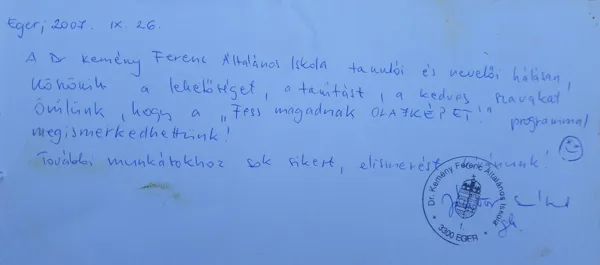 Eger, 2007. IX 26.
A Dr Kemény Ferenc Általános Iskola tanulói és nevelői hálásan
köszönik a lehetőséget, a tanítást, a kedves szavakat
Örülünk, hogy a „Fess magadnak OLAJKÉPET!" programmal
megismerkedhettünk!
További munkátokhoz sok sikert, elismerést kívánunk!
Dr. Kemény Ferenc Általános Iskola
1.
3300 EGER